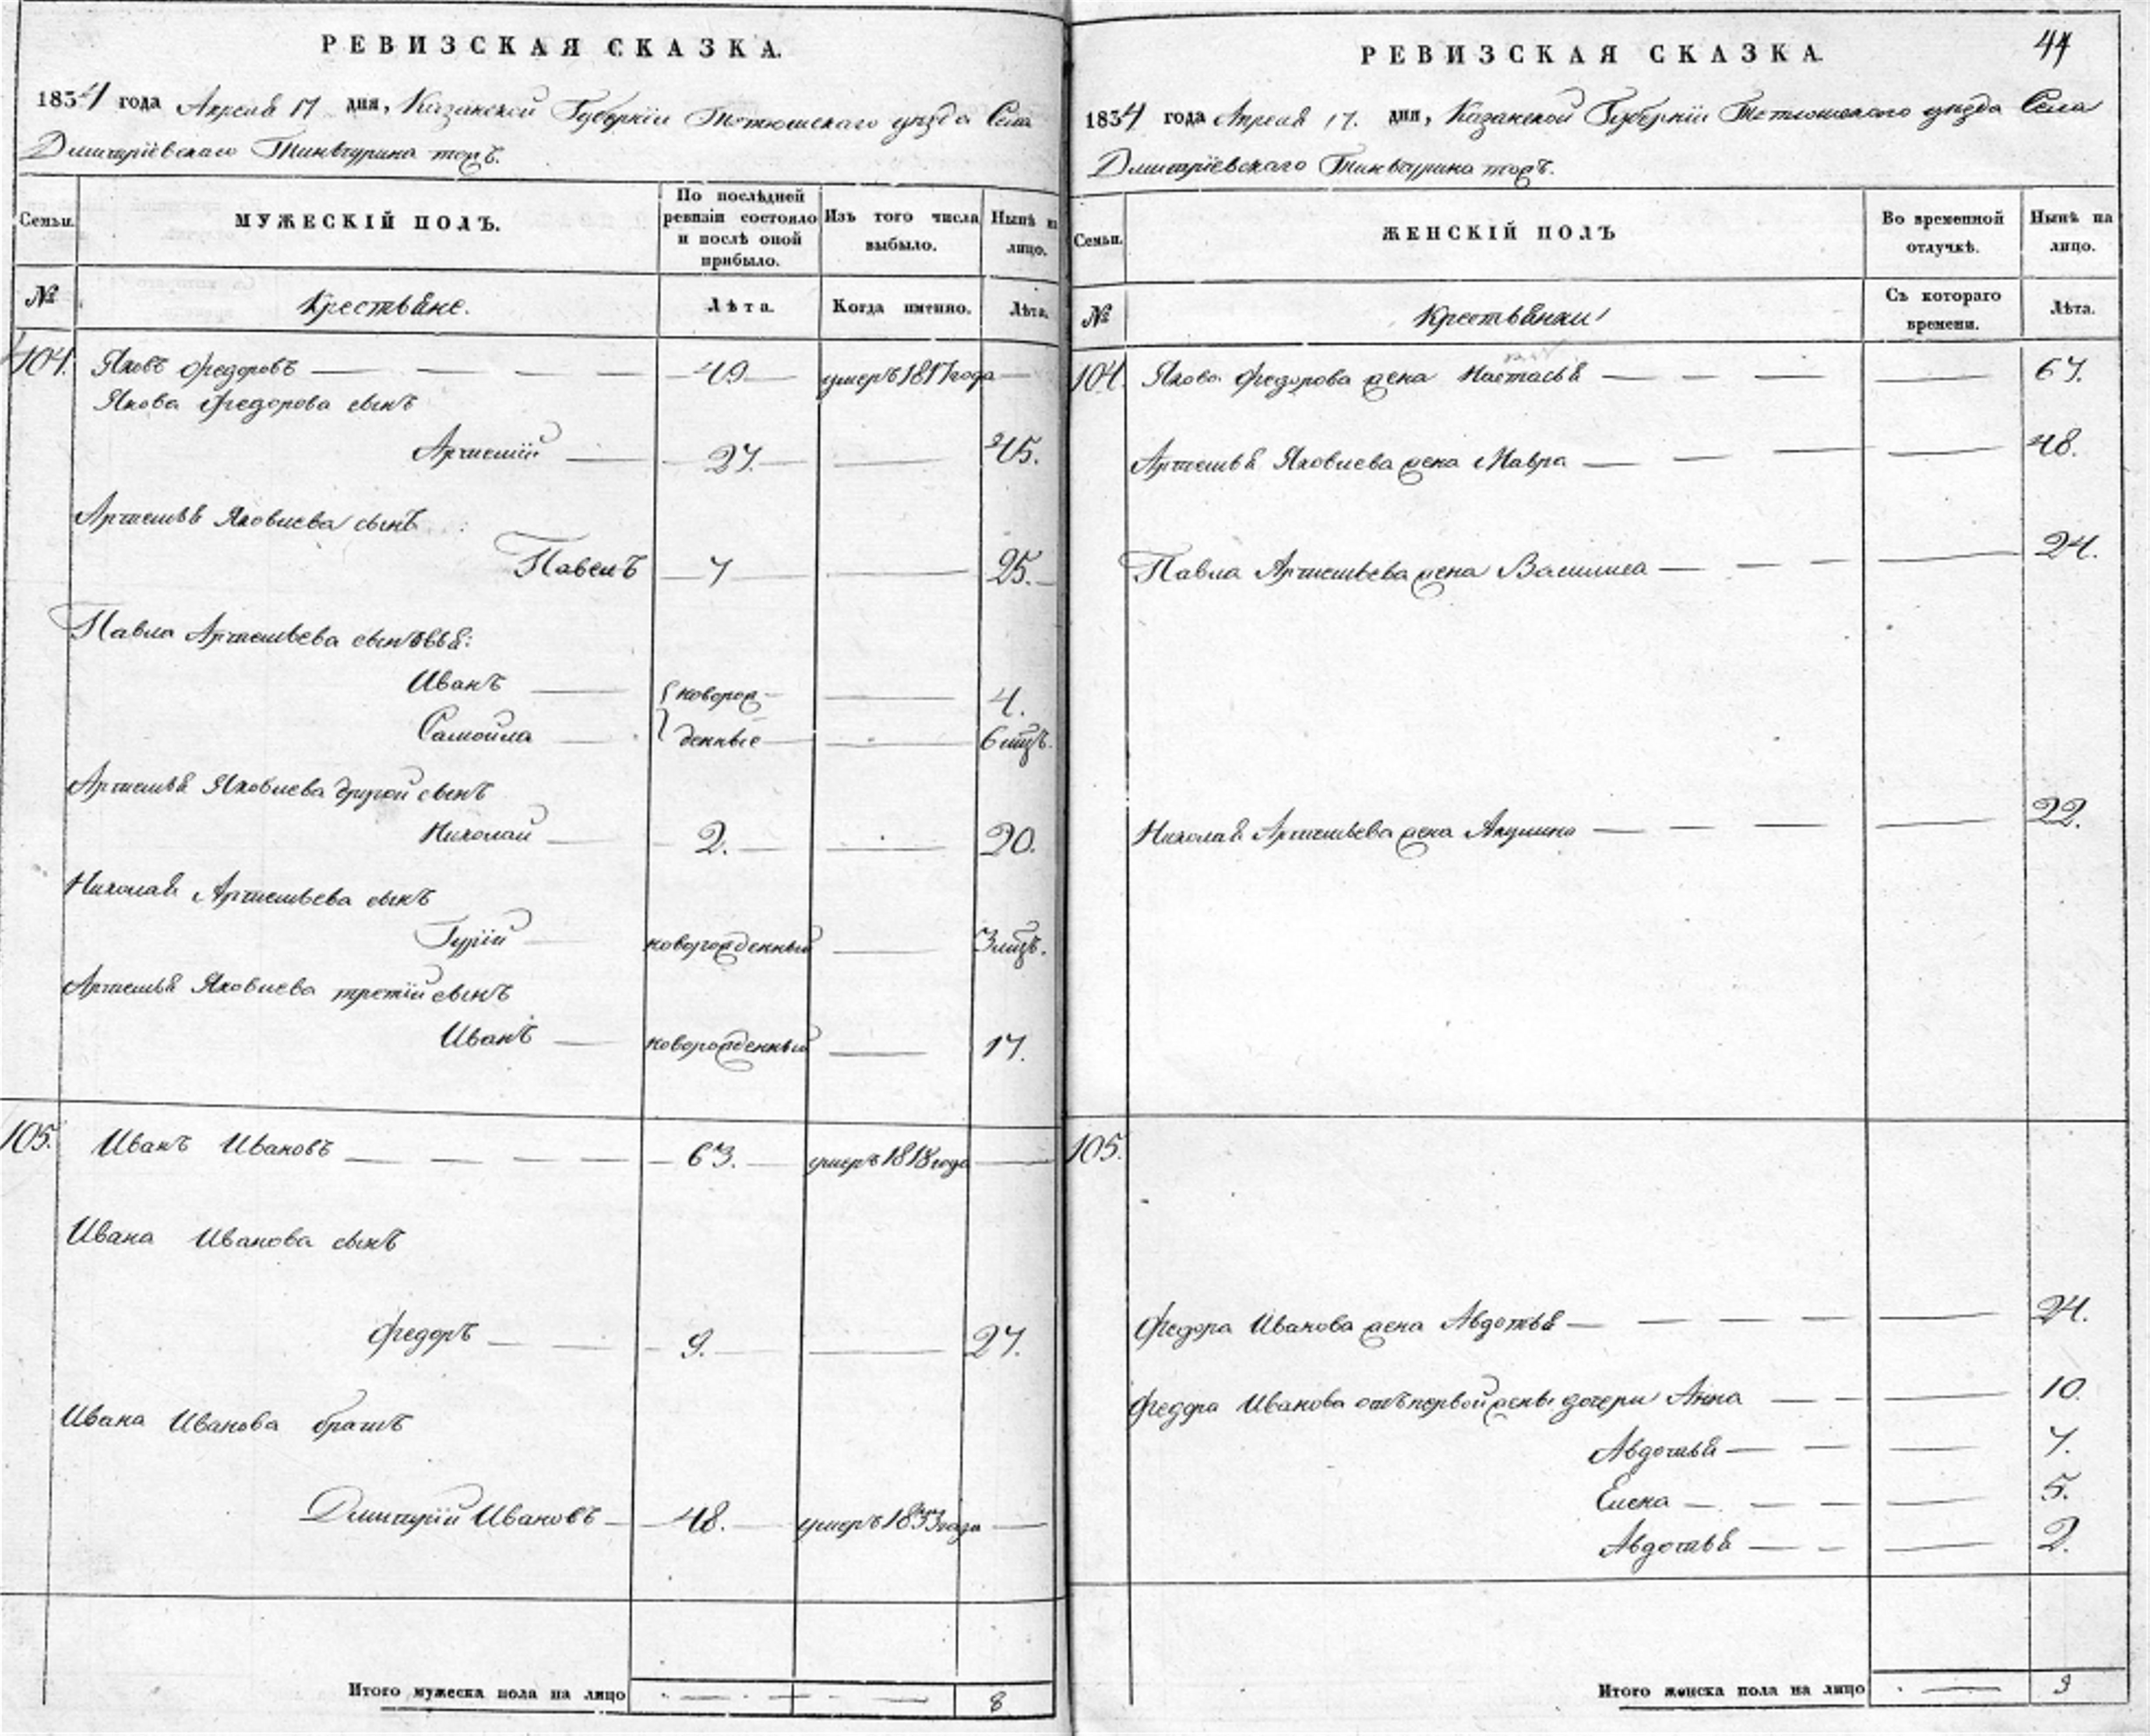 РЕВИЗСКАЯ СКАЗКА.
1834 года Апреля 17 дня, Казанской Губернiи Тетюшскаго уѣзда Села
Дмитрiевскаго Тинчурина тож.
Семьи.
МУЖЕСКIЙ ПОЛЪ.
По послѣдней ревизiи состояло и послѣ оной прибыло.
Изъ того числа выбыло.
Нынѣ на лицо.
№
Крестьяне.
Лѣта.
Когда именно.
Лѣта.
104. Яковъ Федоровъ — 49 умеръ 1817 года —
Якова Федорова сынъ
Артемiй — 27. — 45.
Артемья Яковлева сынъ
Павелъ — 7 — 25.
Павла Артемьева сыновья:
Иванъ — новорож- — 4.
Самойла — денные — 6 мцъ.
Артемья Яковлева другой сынъ
Николай — 2. — 20.
Николая Артемьева сынъ
Гурiй — новорожденный — 3 мцъ.
Артемья Яковлева третiй сынъ
Иванъ — новорожденный — 17.
105. Иванъ Ивановъ — 63. — умеръ 1818 года —
Ивана Иванова сынъ
Федоръ — 9. — 27.
Ивана Иванова братъ
Дмитрiй Ивановъ — 48. — умеръ 1833 года —
Итого мужеска пола на лицо — 8
РЕВИЗСКАЯ СКАЗКА.
1834 года Апреля 17. дня, Казанской Губернiи Тетюшскаго уѣзда Села
Дмитрiевскаго Тинчурина тож.
Семьи.
ЖЕНСКIЙ ПОЛЪ
Во временной отлучкѣ.
Нынѣ на лицо.
№
Крестьянки
Съ котораго времени.
Лѣта.
104. Якова Федорова жена Настасья — 67.
Артемья Яковлева жена Мавра — 48.
Павла Артемьева жена Василиса — 24.
Николая Артемьева жена Акулина — 22.
105.
Федора Иванова жена Авдотья — 24.
Федора Иванова отъ первой жены дочери Анна — 10
Авдотья — 7.
Елена — 5.
Авдотья — 2.
Итого женска пола на лицо — 9